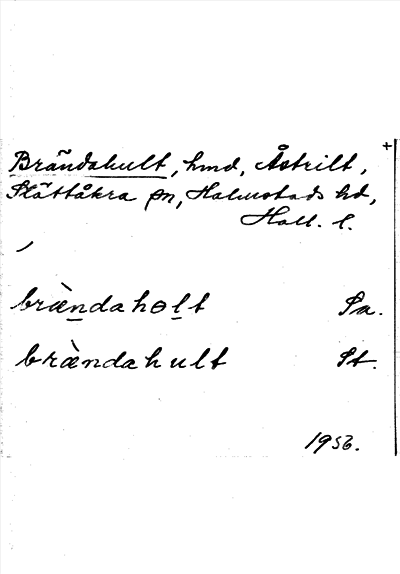 +
Brändahult, hmd, Åstrilt,
Slättåkra sn, Halmstads hd,
Hall. l.
brändahɵlt Sa.
brändahult St.
1953.